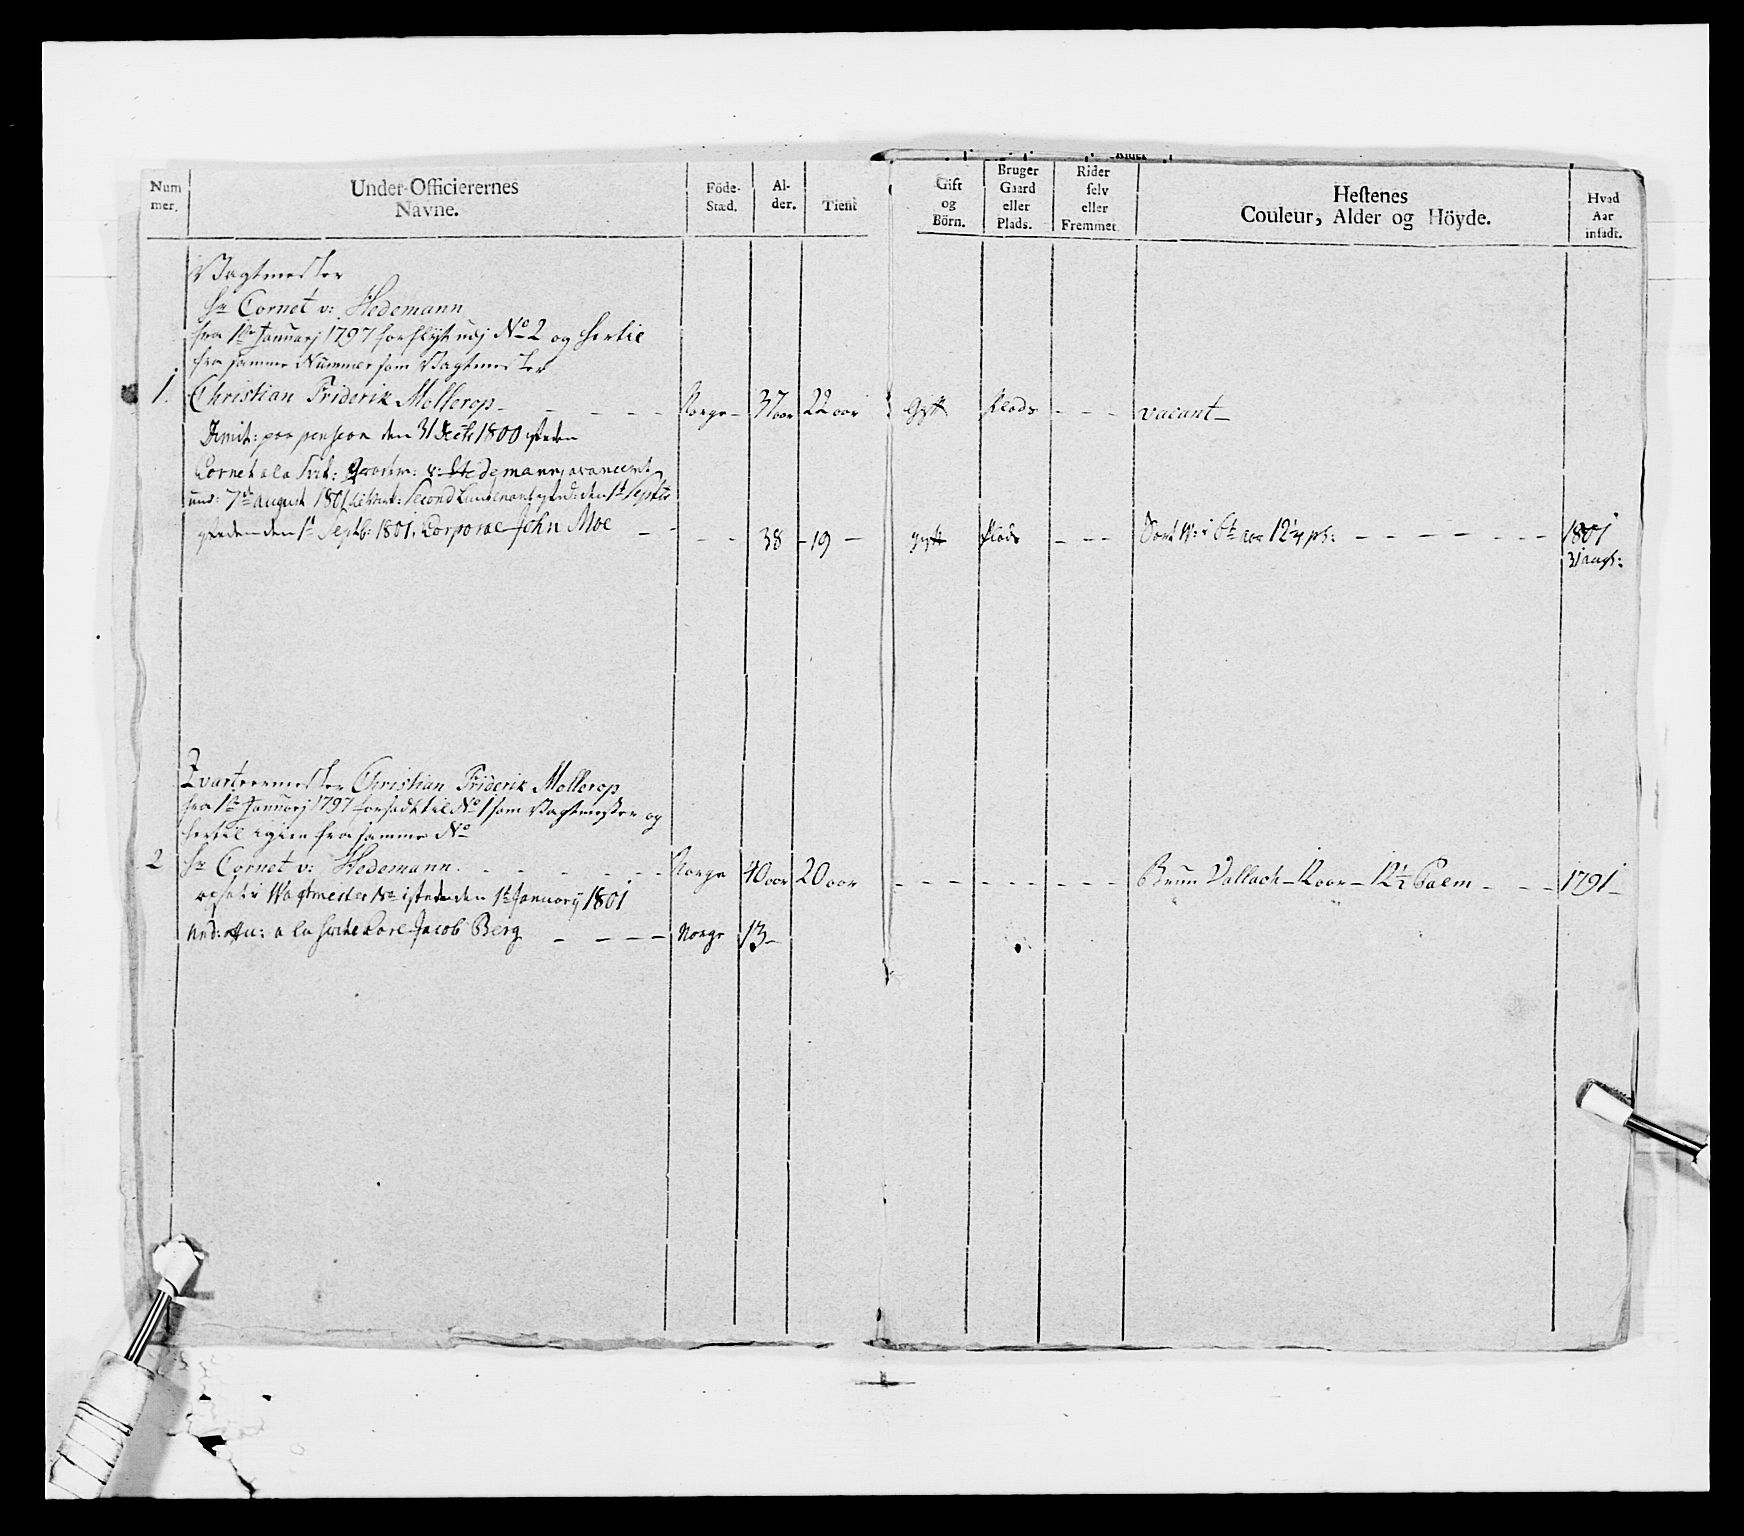 Num
mer.
Under-Officierernes
Navne.
Föde-
Stæd.
Al-
der.
Tient
Gift
og
Börn.
Bruger
Gaard
eller
Plads.
Rider
selv
eller
Fremmet.
Hestenes
Couleur, Alder og Höyde.
Hvad
Aar
insadt.
Vagtmester
Hr Cornet v: Hedemann
fra 1ste Januarj 1797 forflyt udj No 2 og hertil
fra samme Nummer som Vagtmester
1. Christian Friderik Mollerop Norge 37 aar 22 aar Gift Plads vacant
Dimit: paa pension den 31 Decbr 1800 isteden
Cornet a la Suit: v: Hedemann, avanceret
und: 7de August 1801 Second Lieutenant den 1t Septbr
isteden den 1t Septb: 1801. Corporal John Moe 38 19 gift Plads Sort 6t aar 12 1/4 1801
31 aug:
Qvarteermester Christian Friderik Mollerop
fra 1ste Januarj 1797 forsadt til No 1 som Vagtmester og
hertil igien fra samme No
2 Hr Cornet v: Hedemann Norge 40 aar 20 aar Brun Vallach 12 aar 12 1/2 Palm 1791
Wagtmester isteden den 1t Januarij 1801
Und: Off: a la suite Carl Jacob Berg Norge 13